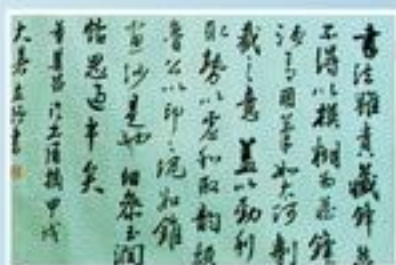 書法雖貴藏鋒然
不得以模糊為藏鋒
須有用筆如太阿剸
截之意蓋以勁利
取勢以虛和取韻顏
魯公以印印泥如錐
畫沙是也細參玉潤
帖思過半矣
董其昌摘甲戌
書